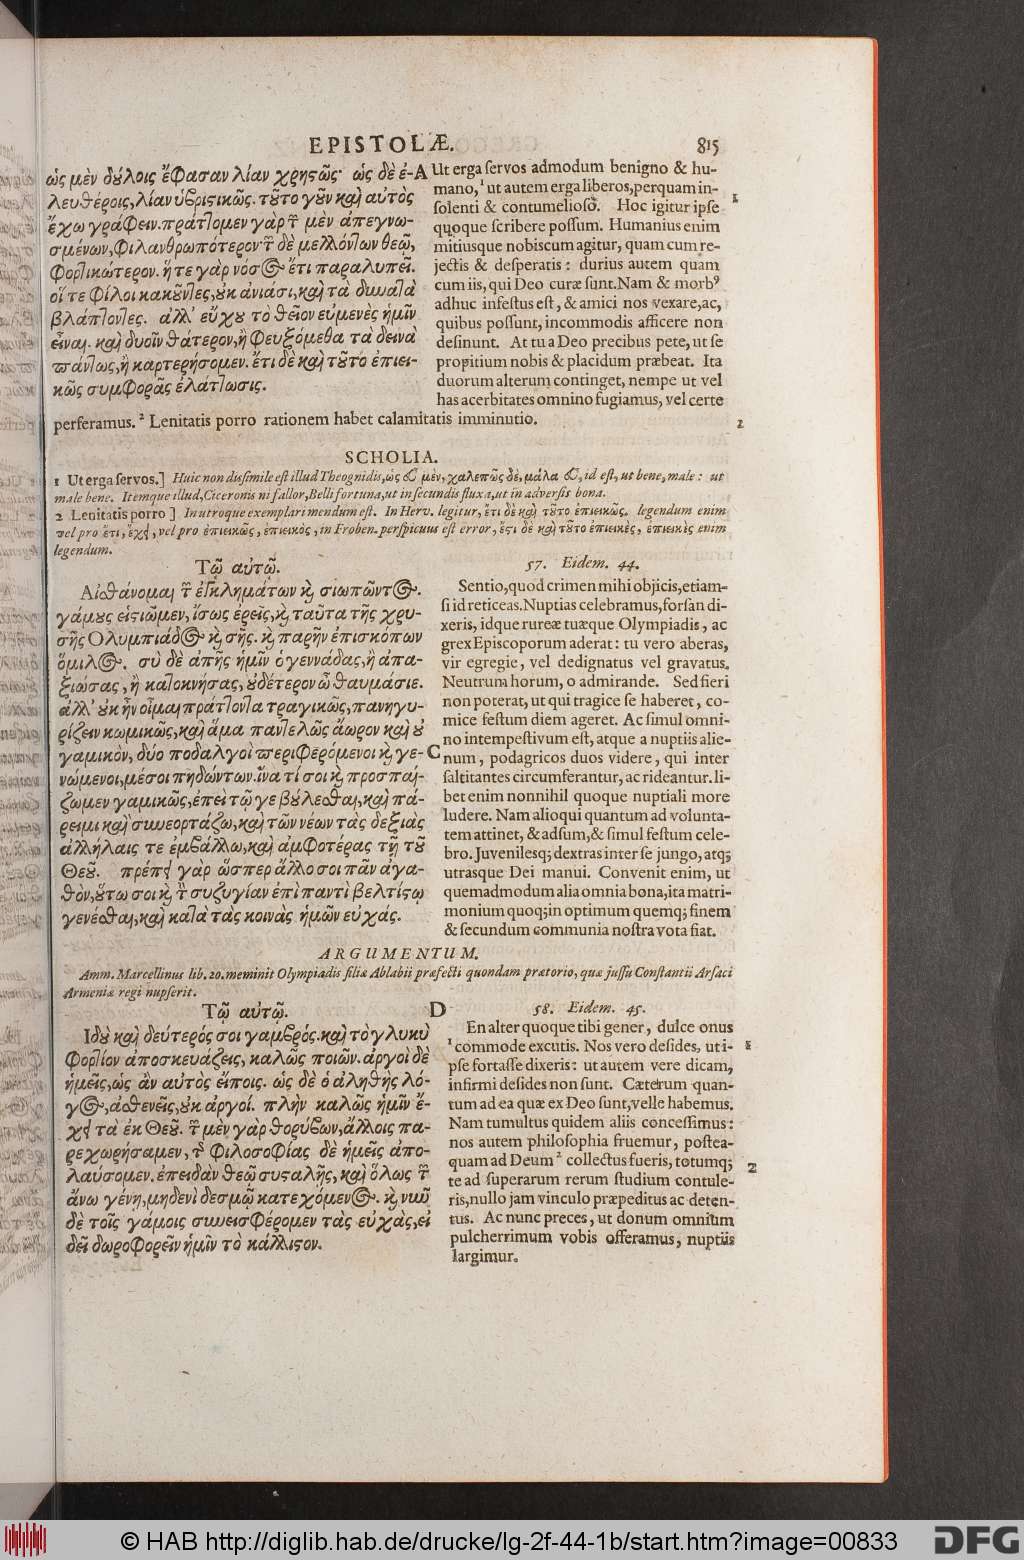 EPISTOLÆ.
815
ὡς μὲν δούλοις ἔφασαν λίαν χρηστῶς· ὡς δὲ ἐ-
λευθέροις, λίαν ὑβριστικῶς. τοῦτο γοῦν καὶ αὐτὸς
ἔχω γράφειν. πράττομεν γὰρ τῶν μὲν ἀπεγνω-
σμένων, φιλανθρωπότερον· τῶν δὲ μελλόντων θεῷ,
φορτικώτερον. ἥ τε γὰρ νόσος ἔτι παραλυπεῖ.
οἵ τε φίλοι κακοῦντες, οὐκ ἀνιάσι, καὶ τὰ δυνατὰ
βλάπτοντες. ἀλλ' εὔχου τὸ θεῖον εὐμενὲς ἡμῖν
εἶναι. καὶ δυοῖν θάτερον, ἢ φευξόμεθα τὰ δεινὰ
πάντως, ἢ καρτερήσομεν. ἔτι δὲ καὶ τοῦτο ἐπιει-
κῶς συμφορᾶς ἐλάττωσις.
A
Ut erga servos admodum benigno & hu-
mano,¹ ut autem erga liberos, perquam in-
solenti & contumelioso. Hoc igitur ipse
quoque scribere possum. Humanius enim
mitiusque nobiscum agitur, quam cum re-
jectis & desperatis: durius autem quam
cum iis, qui Deo curæ sunt. Nam & morb⁹
adhuc infestus est, & amici nos vexare, ac,
quibus possunt, incommodis afficere non
desinunt. At tu a Deo precibus pete, ut se
propitium nobis & placidum præbeat. Ita
duorum alterum continget, nempe ut vel
has acerbitates omnino fugiamus, vel certe
1
perferamus.² Lenitatis porro rationem habet calamitatis imminutio.
2
SCHOLIA.
1 Ut erga servos.] Huic non dissimile est illud Theognidis, ὡς εὖ μὲν, χαλεπῶς δὲ, μάλα εὖ, id est, ut bene, male: ut
male bene. Itemque illud, Ciceronis ni fallor, Belli fortuna, ut in secundis fluxa, ut in adversis bona.
2 Lenitatis porro ] In utroque exemplari mendum est. In Herv. legitur, ἔτι δὲ καὶ τοῦτο ἐπιεικῶς. legendum enim
vel pro ἔτι, ἔχει, vel pro ἐπιεικῶς, ἐπιεικὸς, in Froben. perspicuus est error, ἔστι δὲ καὶ τοῦτο ἐπιεικὲς, ἐπιεικὲς enim
legendum.
Τῷ αὐτῷ.
Αἰσθάνομαι τῶν ἐγκλημάτων καὶ σιωπῶντος.
γάμους εἱστιῶμεν, ἴσως ἐρεῖς, καὶ ταῦτα τῆς χρυ-
σῆς Ὀλυμπιάδος καὶ σῆς. καὶ παρῆν ἐπισκόπων
ὅμιλος. σὺ δὲ ἀπῆς ἡμῖν ὁ γεννάδας, ἢ ἀπα-
ξιώσας, ἢ κατοκνήσας, οὐδέτερον ὦ θαυμάσιε.
ἀλλ' οὐκ ἦν οἶμαι πράττοντα τραγικῶς, πανηγυ-
ρίζειν κωμικῶς, καὶ ἅμα παντελῶς ἄωρον καὶ οὐ
γαμικὸν, δύο ποδαλγοὶ περιφερόμενοι καὶ γε-
νώμενοι, μέσοι πηδώντων. ἵνα τί σοι καὶ προσπαί-
ζωμεν γαμικῶς, ἐπεὶ τῷ γε βούλεσθαι, καὶ πά-
ρειμι καὶ συνεορτάζω, καὶ τῶν νέων τὰς δεξιὰς
ἀλλήλαις τε ἐμβάλλω, καὶ ἀμφοτέρας τῇ τοῦ
Θεοῦ. πρέπει γὰρ ὥσπερ ἄλλο σοι πᾶν ἀγα-
θὸν, οὕτω σοι καὶ τὴν συζυγίαν ἐπὶ παντὶ βελτίστῳ
γενέσθαι, καὶ κατὰ τὰς κοινὰς ἡμῶν εὐχάς.
C
57. Eidem. 44.
Sentio, quod crimen mihi objicis, etiam-
si id reticeas. Nuptias celebramus, forsan di-
xeris, idque rureæ tuæque Olympiadis, ac
grex Episcoporum aderat: tu vero aberas,
vir egregie, vel dedignatus vel gravatus.
Neutrum horum, o admirande. Sed fieri
non poterat, ut qui tragice se haberet, co-
mice festum diem ageret. Ac simul omni-
no intempestivum est, atque a nuptiis alie-
num, podagricos duos videre, qui inter
saltitantes circumferantur, ac rideantur. li-
bet enim nonnihil quoque nuptiali more
ludere. Nam alioqui quantum ad volunta-
tem attinet, & adsum, & simul festum cele-
bro. Juvenilesq; dextras inter se jungo, atq;
utrasque Dei manui. Convenit enim, ut
quemadmodum alia omnia bona, ita matri-
monium quoq; in optimum quemq; finem
& secundum communia nostra vota fiat.
ARGUMENTUM.
Amm. Marcellinus lib. 20. meminit Olympiadis filiæ Ablabii præfecti quondam prætorio, quæ jussu Constantii Arsaci
Armeniæ regi nupserit.
Τῷ αὐτῷ.
Ἰδοὺ καὶ δεύτερός σοι γαμβρός. καὶ τὸ γλυκὺ
φορτίον ἀποσκευάζεις, καλῶς ποιῶν. ἀργοὶ δὲ
ἡμεῖς, ὡς ἂν αὐτὸς εἴποις. ὡς δὲ ὁ ἀληθὴς λό-
γος, ἀσθενεῖς, οὐκ ἀργοί. πλὴν καλῶς ἡμῖν ἔ-
χει τὰ ἐκ Θεοῦ. τῶν μὲν γὰρ θορύβων, ἄλλοις πα-
ρεχωρήσαμεν, τῆς φιλοσοφίας δὲ ἡμεῖς ἀπο-
λαύσομεν. ἐπειδὰν θεῷ συσταλῇς, καὶ ὅλως τῶν
ἄνω γένῃ, μηδενὶ δεσμῷ κατεχόμενος. καὶ νυνῦ
δὲ τοῖς γάμοις συνεισφέρομεν τὰς εὐχὰς, εἰ
δεῖ δωροφορεῖν ἡμῖν τὸ κάλλιστον.
D
58. Eidem. 45.
En alter quoque tibi gener, dulce onus
¹ commode excutis. Nos vero desides, ut i-
pse fortasse dixeris: ut autem vere dicam,
infirmi desides non sunt. Cæterum quan-
tum ad ea quæ ex Deo sunt, velle habemus.
Nam tumultus quidem aliis concessimus:
nos autem philosophia fruemur, postea-
quam ad Deum² collectus fueris, totumq;
te ad superarum rerum studium contule-
ris, nullo jam vinculo præpeditus ac deten-
tus. Ac nunc preces, ut donum omnium
pulcherrimum vobis offeramus, nuptiis
largimur.
1
2
© HAB http://diglib.hab.de/drucke/lg-2f-44-1b/start.htm?image=00833
DFG